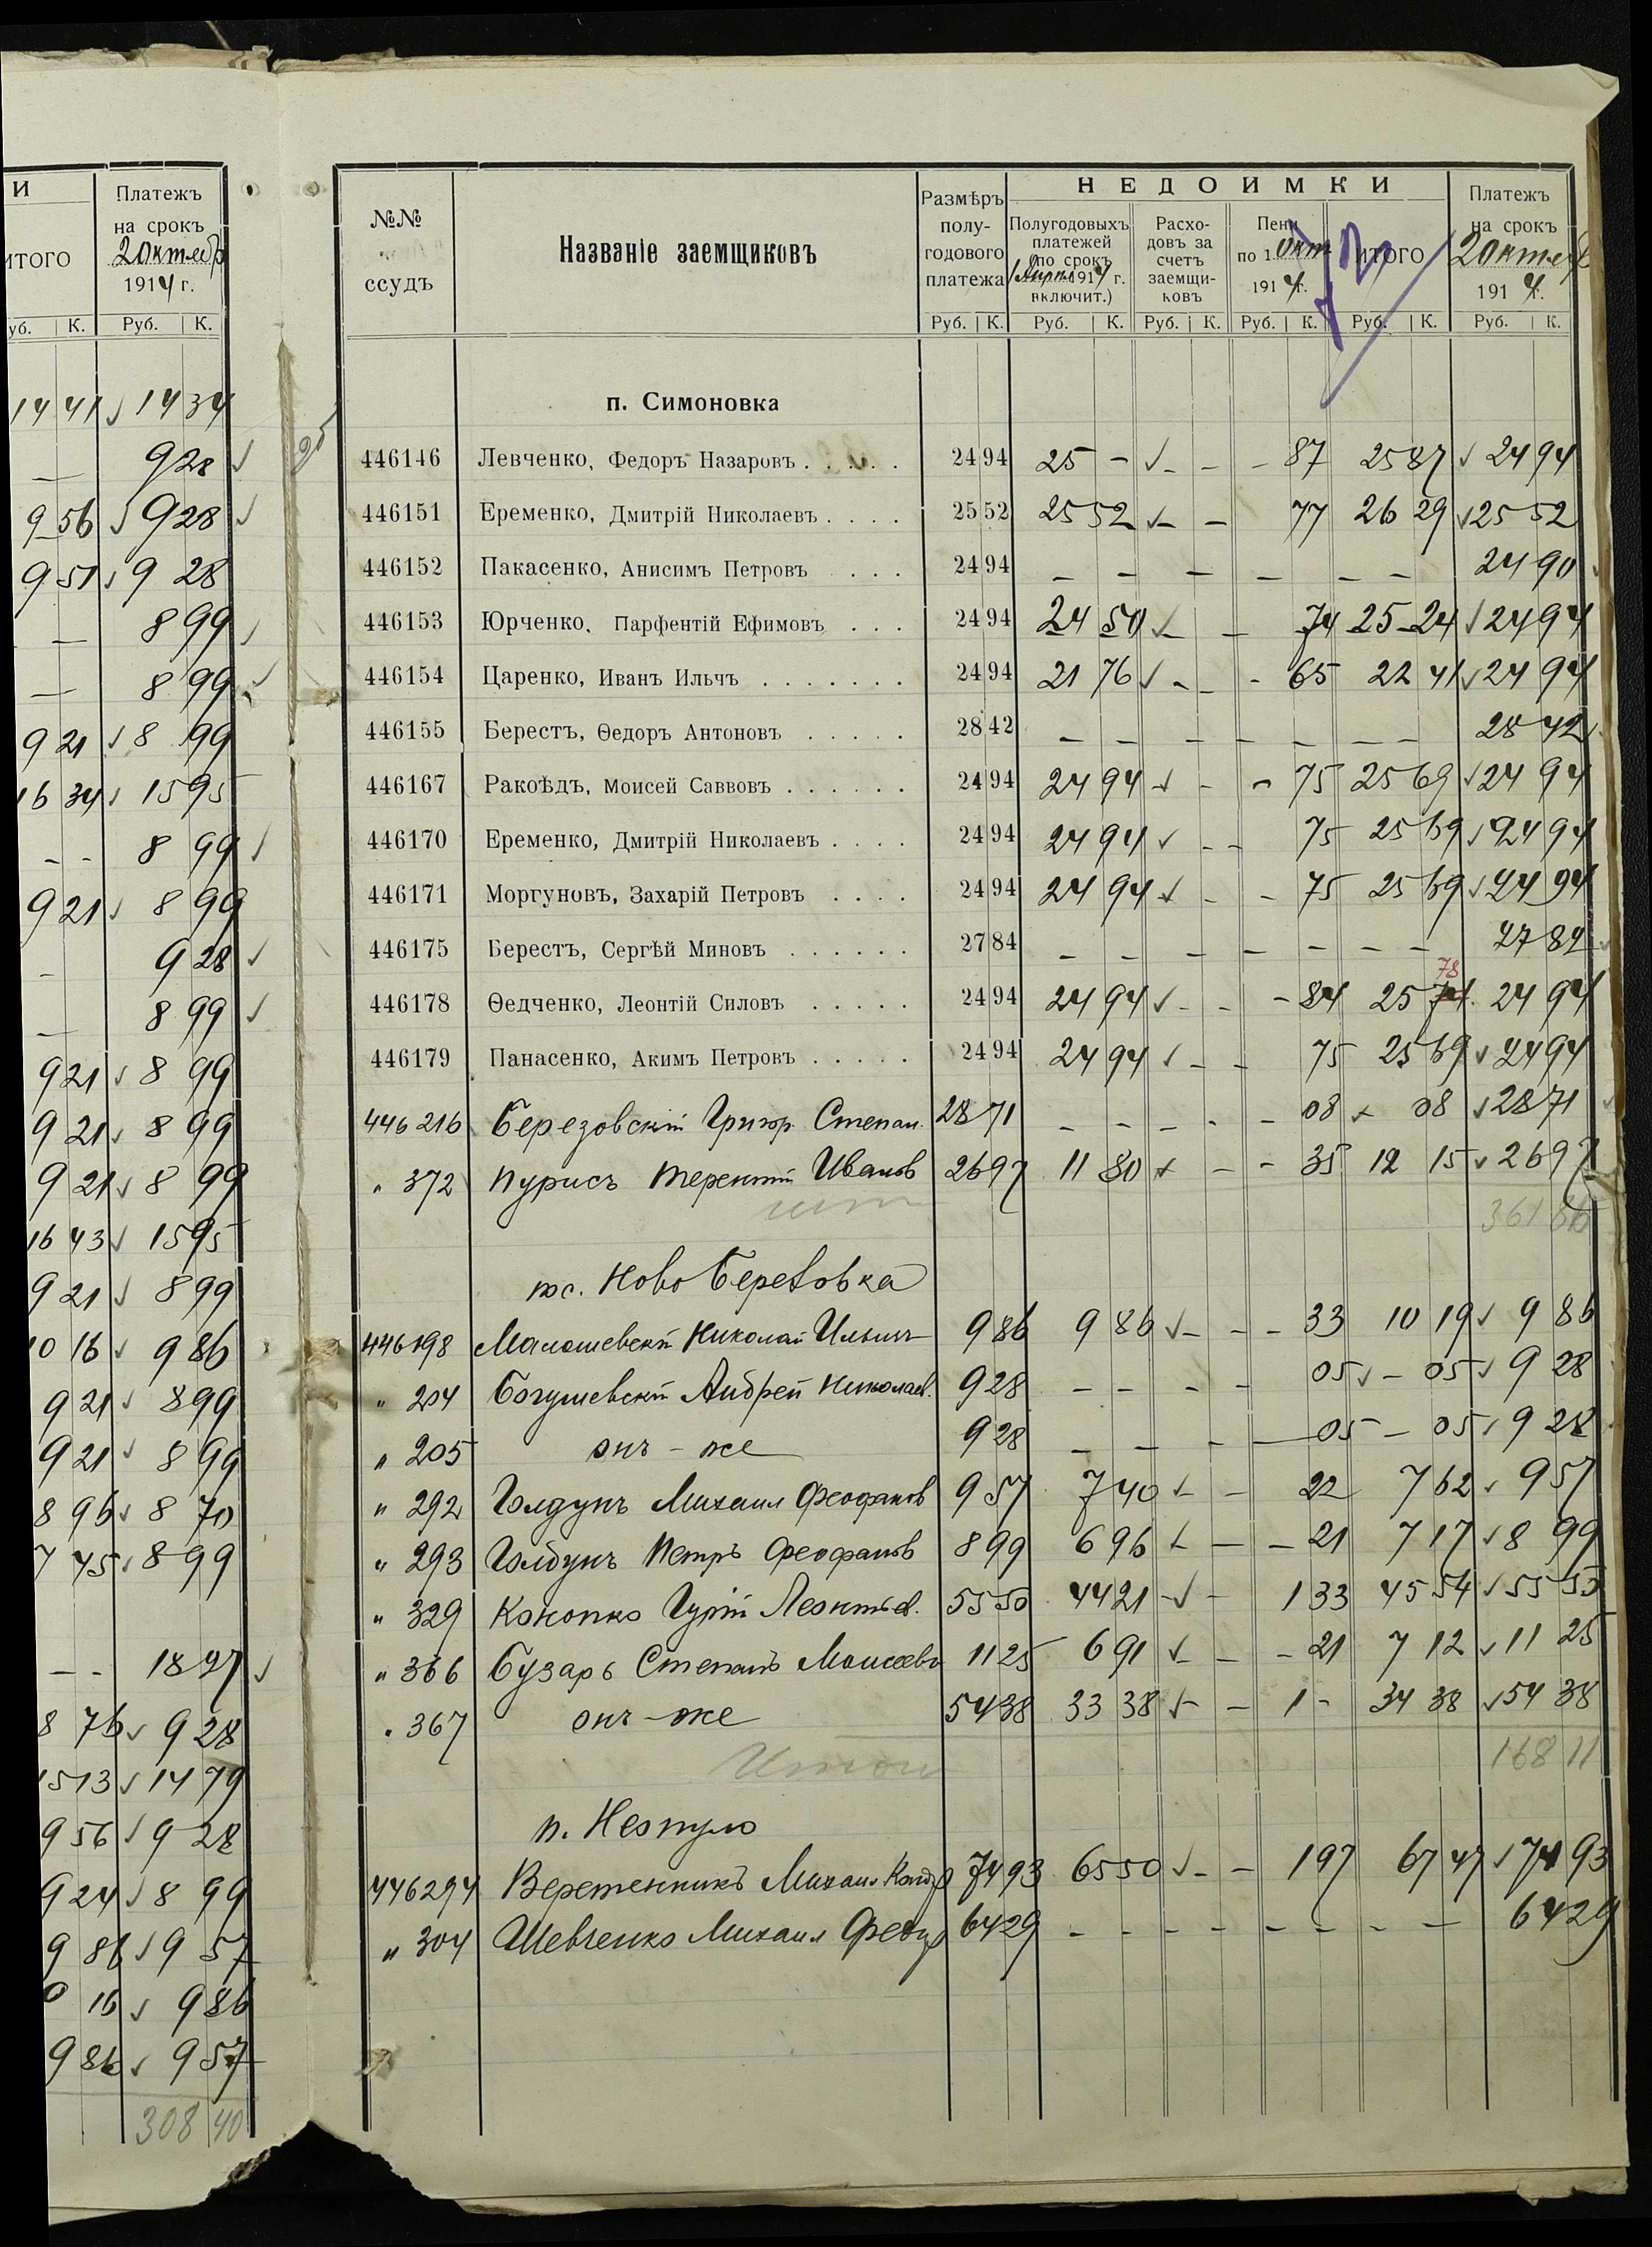 И
Платежъ
на срокъ
2 октебр
1914 г.
ИТОГО
уб. К. Руб. К.
14 41 √ 14 34
— 9 28 √
9 56 √ 9 28 √
9 51 √ 9 28
— 8 99 √
— 8 99 √
9 21 √ 8 99
16 34 √ 15 95
- - 8 99 √
9 21 √ 8 99
- 9 28 √
— 8 99 √
9 21 √ 8 99
9 21 √ 8 99
9 21 √ 8 99
16 43 √ 15 95
9 21 √ 8 99
10 16 √ 9 86
9 21 √ 8 99
9 21 √ 8 99
8 96 √ 8 70
7 45 √ 8 99
- - 18 27 √
8 76 √ 9 28
15 13 √ 14 79
9 56 √ 9 28
9 24 √ 8 99
9 86 √ 9 57
0 16 √ 9 86
9 86 √ 9 57
308 40
№№ ссудъ
Названіе заемщиковъ
Размѣръ полу-годового платежа
НЕДОИМКИ
Полугодовыхъ платежей (по срокъ 1 Апрля 1914 г. включит.)
Расхо-довъ за счетъ заемщи-ковъ
Пени по 1 Окт 1914 г.
ИТОГО
Платежъ на срокъ 2 октеб 1914 г.
Руб. К. Руб. К. Руб. К. Руб. К. Руб. К. Руб. К.
п. Симоновка
446146 Левченко, Федоръ Назаровъ . . . . . 24 94 25 - √ - - - 87 25 87 √ 24 94
446151 Еременко, Дмитрій Николаевъ . . . . 25 52 25 52 √ - - 77 26 29 √ 25 52
446152 Пакасенко, Анисимъ Петровъ . . . 24 94 - - - - - - 24 90
446153 Юрченко, Парфентій Ефимовъ . . . 24 94 24 50 √ - - 74 25 24 √ 24 94
446154 Царенко, Иванъ Ильчъ . . . . . . . 24 94 21 76 √ - - - 65 22 41 √ 24 94
446155 Берестъ, Ѳедоръ Антоновъ . . . . . 28 42 - - - - - - - 28 42
446167 Ракоѣдъ, Моисей Саввовъ . . . . . . 24 94 24 94 √ - - 75 25 69 √ 24 94
446170 Еременко, Дмитрій Николаевъ . . . . 24 94 24 94 √ - - 75 25 69 √ 24 94
446171 Моргуновъ, Захарій Петровъ . . . . 24 94 24 94 √ - - 75 25 69 √ 24 94
446175 Берестъ, Сергѣй Миновъ . . . . . . 27 84 - - - - - - - 27 84
78
446178 Ѳедченко, Леонтій Силовъ . . . . . 24 94 24 94 √ - - - 84 25 74 24 94
446179 Панасенко, Акимъ Петровъ . . . . . 24 94 24 94 √ - - 75 25 69 √ 24 94
446216 Березовскій Григор. Степан. 28 71 - - - - - 08 × 08 √ 28 71
" 372 Пурисъ Терентій Иванов 26 97 11 80 × - - 35 12 15 √ 26 97
361 86
пос. Ново Березовка
446198 Малошевскій Николай Ильич 9 86 9 86 √ - - - 33 10 19 √ 9 86
" 204 Богушевскій Андрей Николаев. 9 28 - - - - 05 √ - 05 √ 9 28
" 205 онъ-же 9 28 - - - - 05 - 05 √ 9 28
" 292 Голдунъ Михаил Феофанов 9 57 7 40 √ - 22 7 62 √ 9 57
" 293 Голдунъ Петръ Феофанов 8 99 6 96 √ - - 21 7 17 √ 8 99
" 329 Кононко Гурій Леонтьев. 55 50 44 21 √ - 1 33 45 54 √ 55 50
" 366 Бузарь Степанъ Моисеевъ 11 25 6 91 √ - - 21 7 12 √ 11 25
" 367 онъ-же 54 38 33 38 √ - 1 - 34 38 √ 54 38
Итого 168 11
446294 Веретенникъ Михаил 74 93 65 50 √ - - 1 97 67 47 √ 74 93
" 304 Шевченко Михаил Федор 64 29 - - - - - - - - 64 29